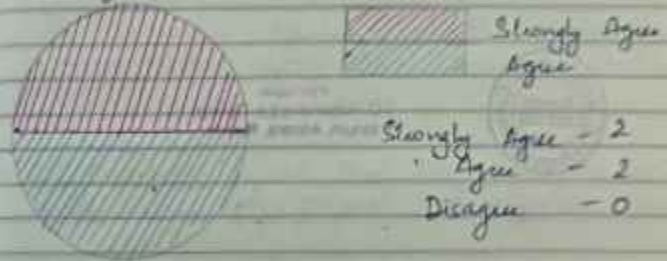 Strongly Agree
Agree
Strongly Agree - 2
Agree - 2
Disagree - 0